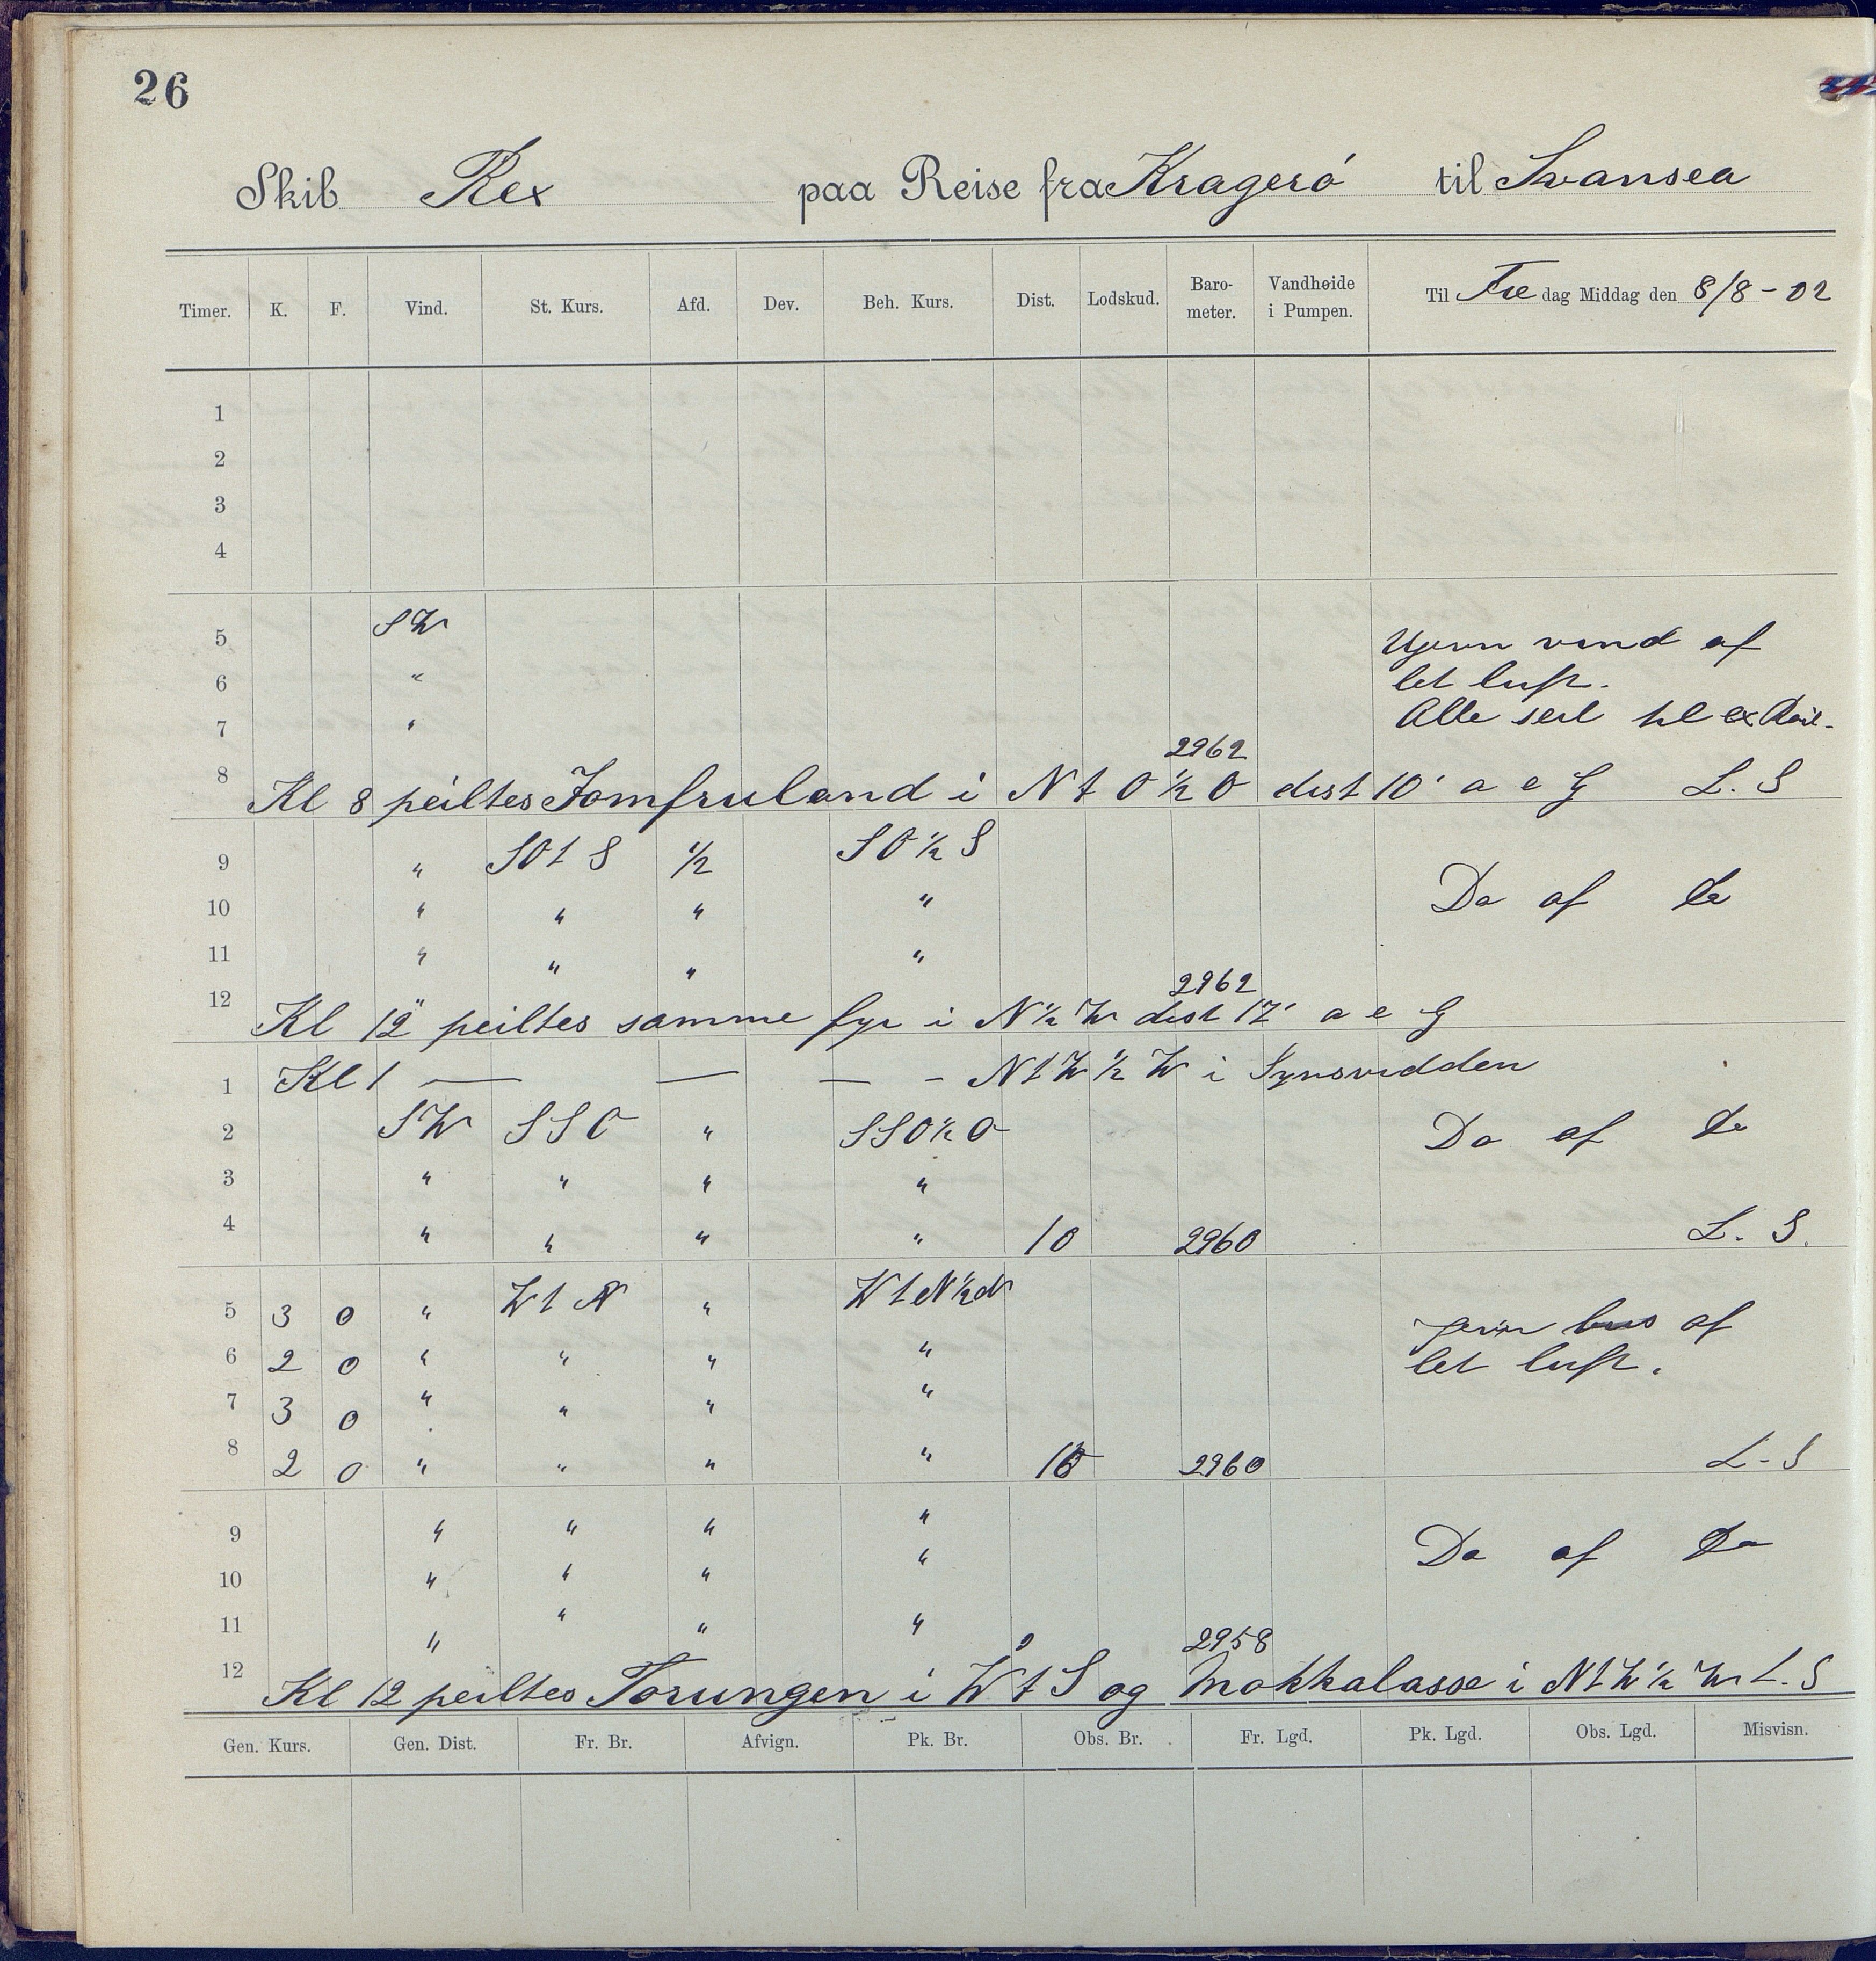 26
Skib Rex paa Reise fra Kragerö til Svansea
Timer. K. F. Vind. St. Kurs. Afd. Dev. Beh. Kurs. Dist. Lodskud. Baro-meter. Vandhøide i Pumpen. Til Fre dag Middag den 8/8-02
1
2
3
4
5 SW Ujevn vind af
6 " let luft.
7 " Alle seil til
2962
8 Kl 8 peiltes Jomfruland i N t O ½ O dist 10' a e G L. S
9 " SO t S ½ SO ½ S
10 " " " " Do af do
11 " " " "
2962
12 " Kl 12 peiltes samme fyr i N ½ W dist 17' a e G
1 Kl 1 — — — - N t W ½ W i Synsvidden
2 SW SSO " SSO ½ O Do af do
3 " " " "
4 " " " " 10 2960 L. S.
5 3 0 " W t N " W t N ½ N af
6 2 0 " " " " let luft.
7 3 0 " " " "
8 2 0 " " " " 10 2960 L-S
9 " " " " Do af do
10 " " " "
11 " " " " 2958
12 Kl 12 peiltes Torungen i W t S og Mokkalasse i N t W ½ W L. S
Gen. Kurs. Gen. Dist. Fr. Br. Afvign. Pk. Br. Obs. Br. Fr. Lgd. Pk. Lgd. Obs. Lgd. Misvisn.